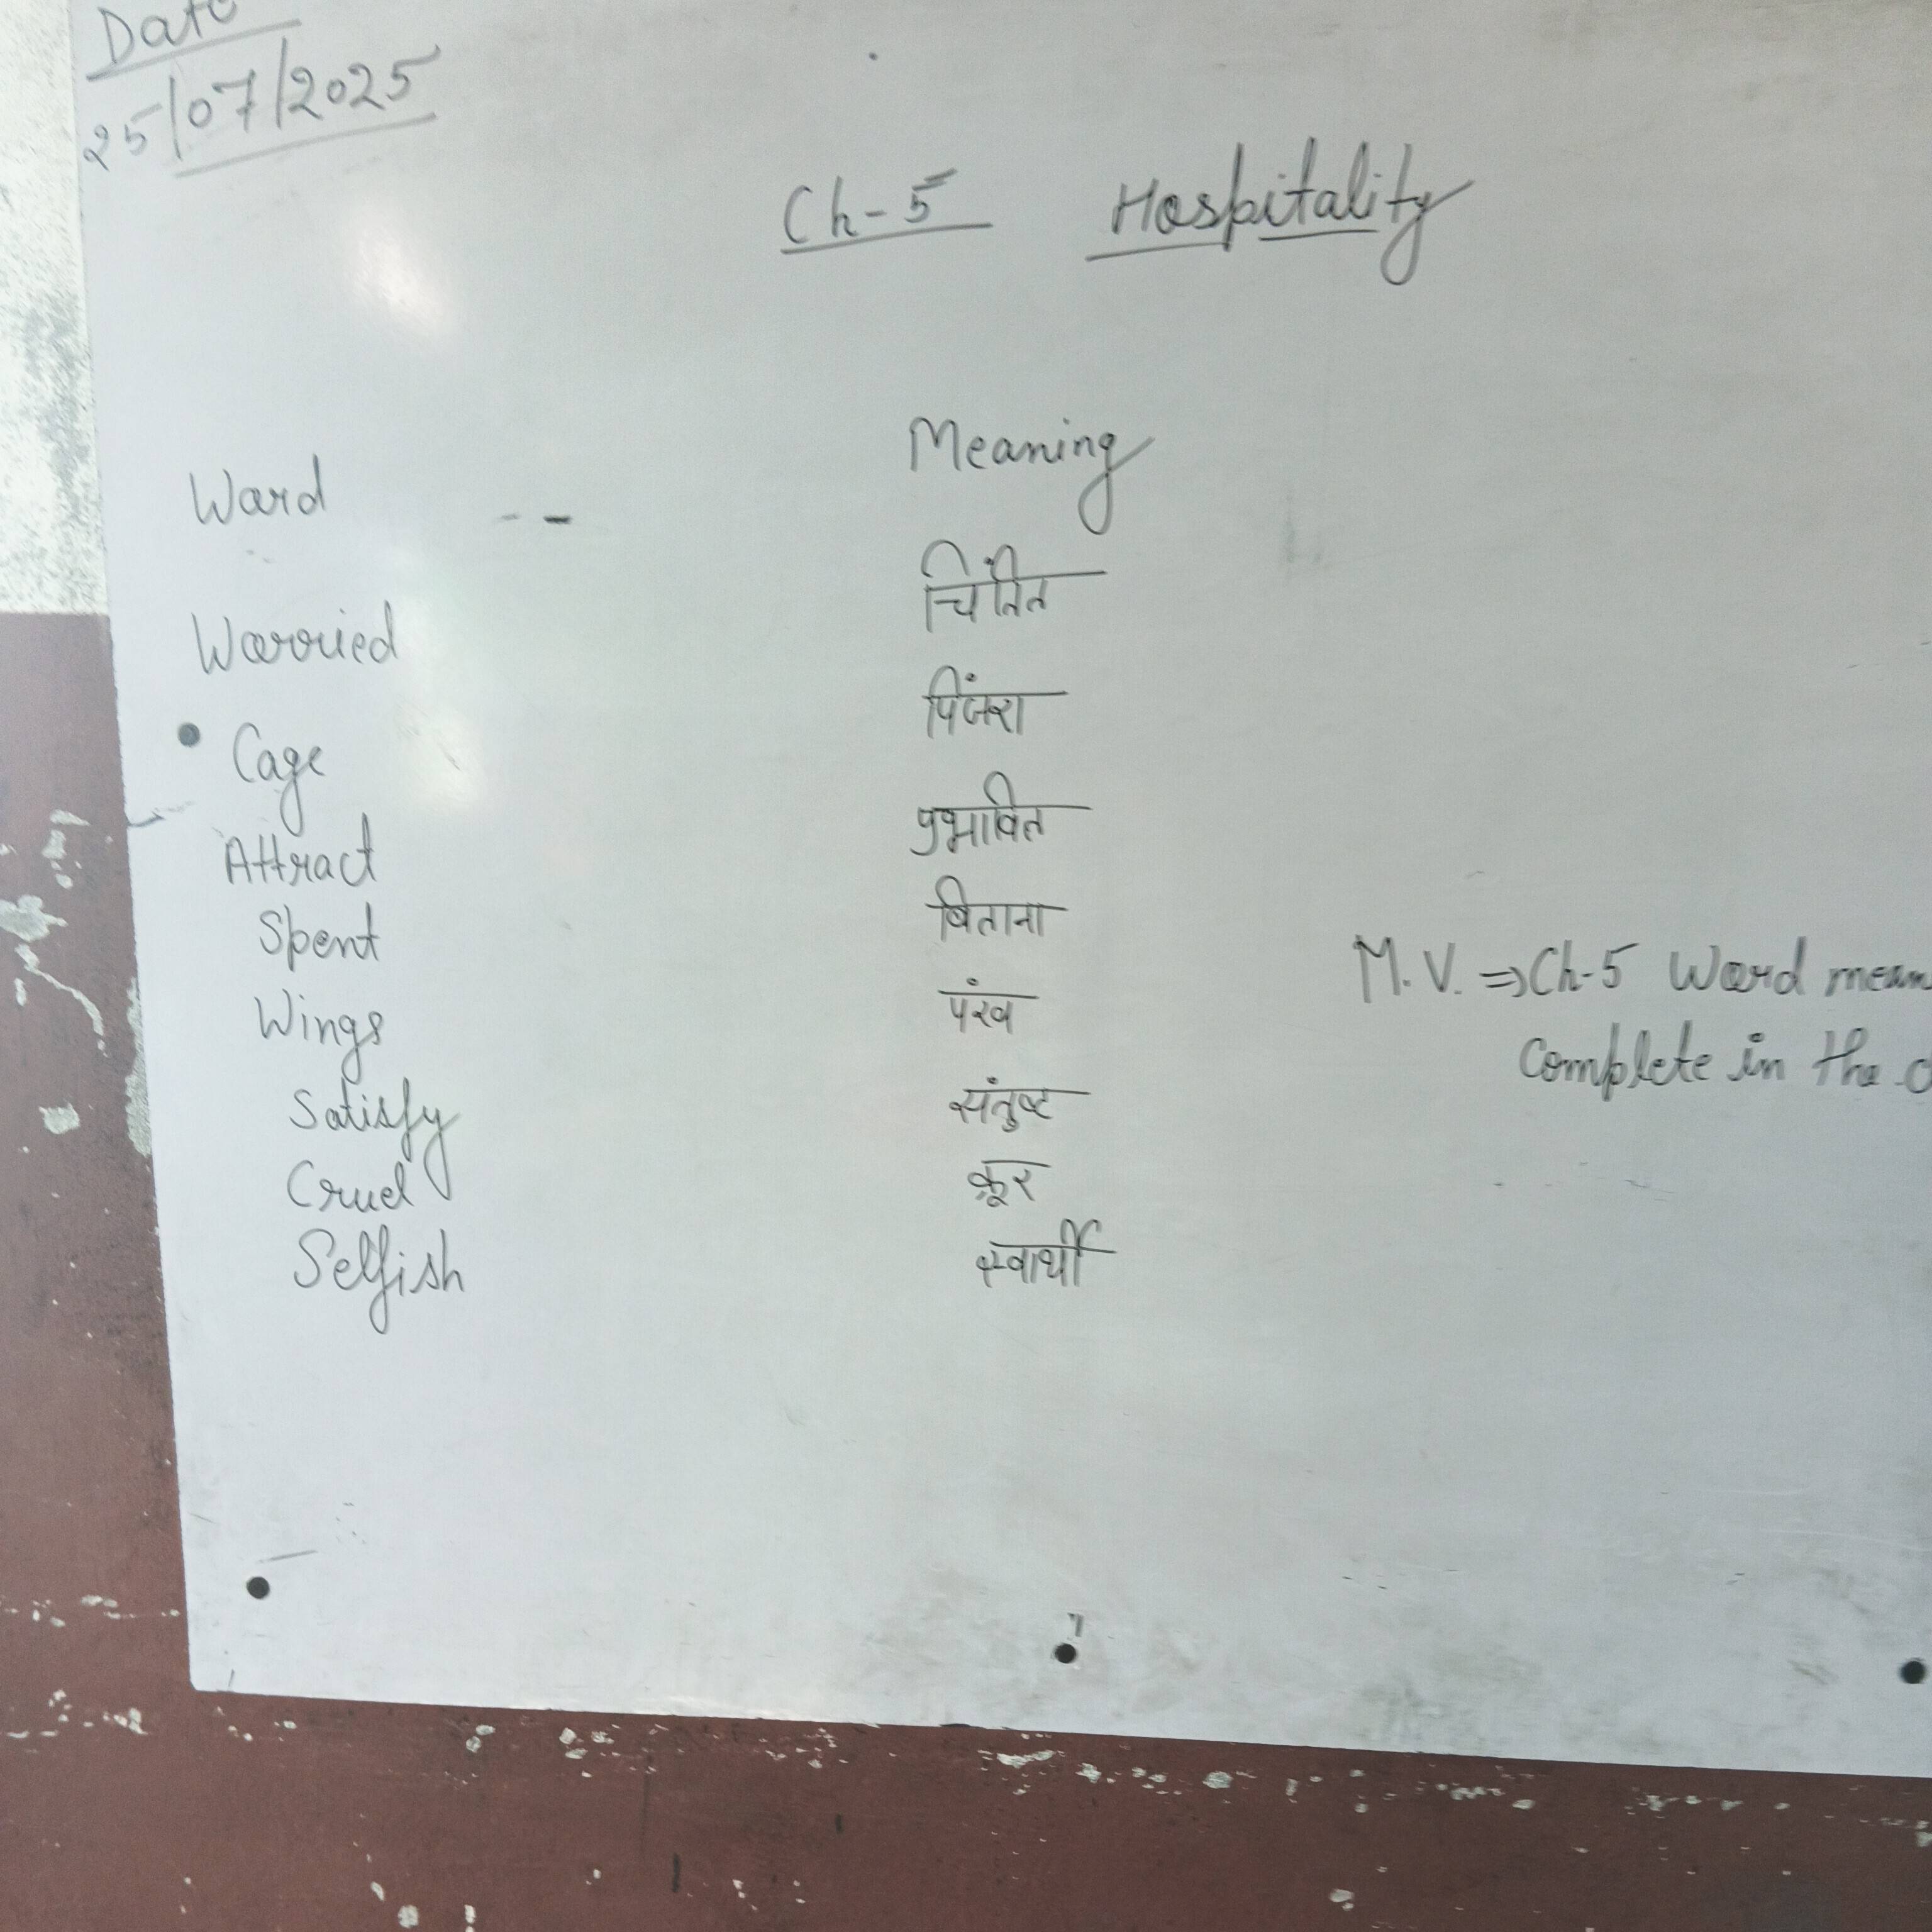 Date
25/07/2025
Ch-5 Hospitality
Word -- Meaning
Worried चिंतित
Cage पिंजरा
Attract प्रभावित
Spent बिताना
Wings पंख
Satisfy संतुष्ट
Cruel क्रूर
Selfish स्वार्थी
M.V. ⇒ Ch-5 Word mean
Complete in the